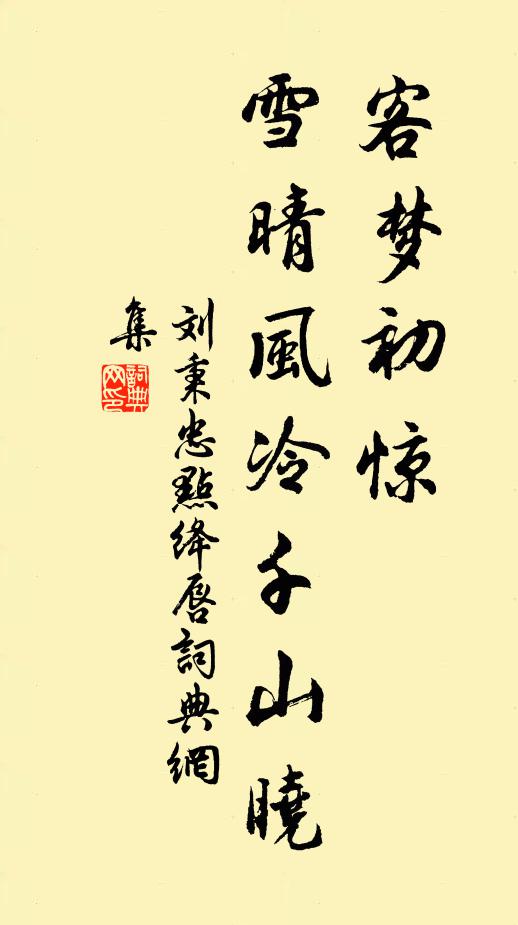 客梦初惊
雪晴風冷千山曉
刘秉忠點绛唇詞典網
集
詞典网印